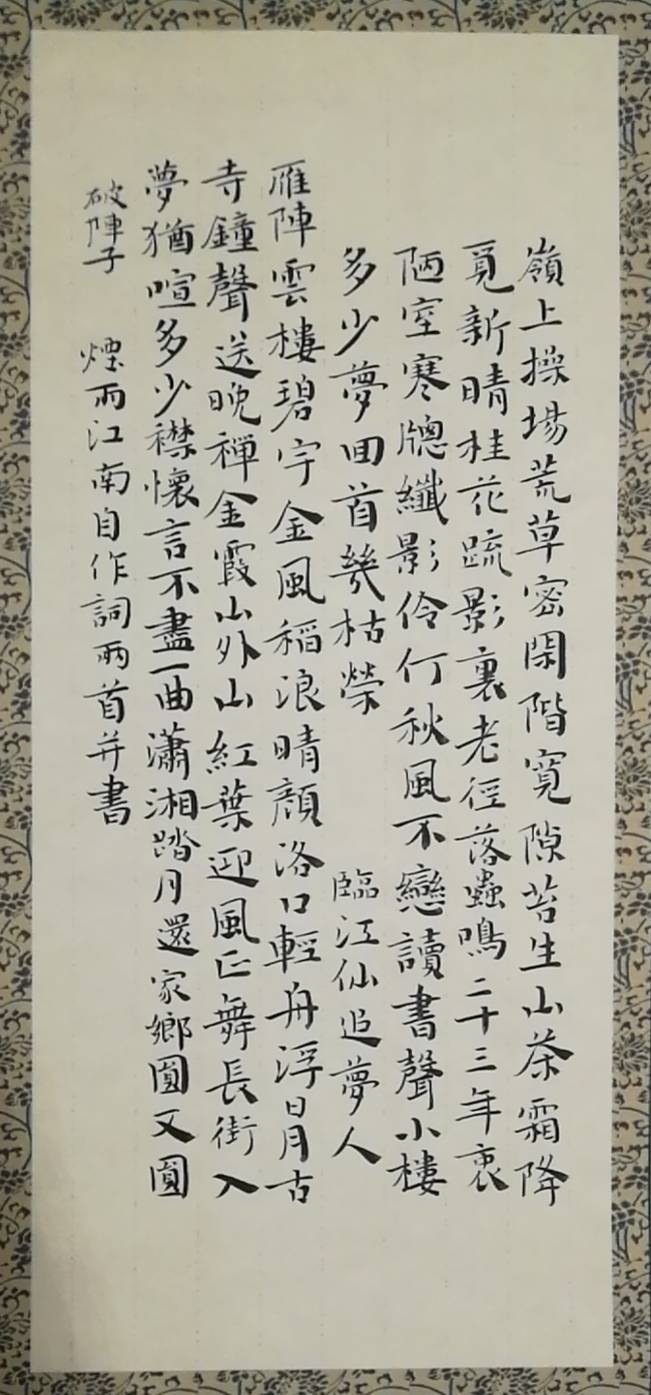 嶺上操場荒草密閑階寬隙苔生山茶霜降
覓新晴桂花疏影裏老徑落蟲鳴二十三年衷
陋室寒牕纖影伶仃秋風不戀讀書聲小樓
多少夢回首幾枯榮 臨江仙追夢人
雁陣雲樓碧宇金風稻浪晴顏洛口輕舟浮日月古
寺鐘聲送晚禪金霞山外山紅葉迎風正舞長街入
夢猶喧多少襟懷言不盡一曲瀟湘踏月還家鄉圓又圓
破陣子 煙雨江南自作詞兩首并書